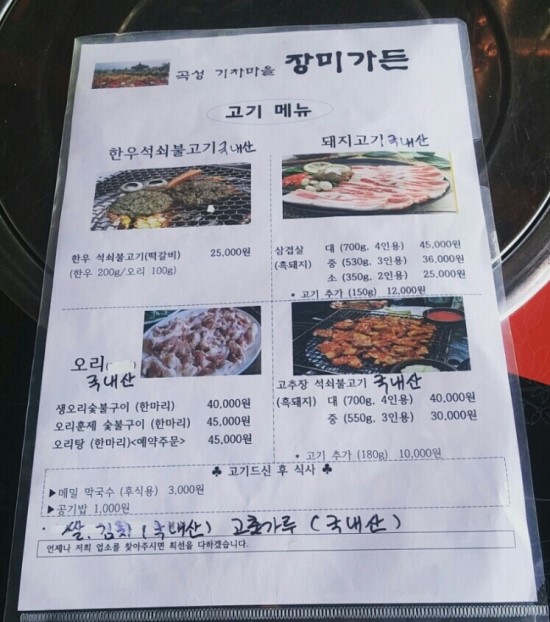 곡성 기차마을 장미가든
고기 메뉴
한우석쇠불고기 국내산
한우 석쇠불고기(떡갈비) 25,000원
(한우 200g/오리 100g)
돼지고기 국내산
삼겹살 대 (700g, 4인용) 45,000원
(흑돼지) 중 (530g, 3인용) 36,000원
소 (350g, 2인용) 25,000원
• 고기 추가 (150g) 12,000원
오리
국내산
생오리숯불구이 (한마리) 40,000원
오리훈제 숯불구이 (한마리) 45,000원
오리탕 (한마리)<예약주문> 45,000원
고추장 석쇠불고기 국내산
(흑돼지) 대 (700g, 4인용) 40,000원
중 (550g, 3인용) 30,000원
• 고기 추가 (180g) 10,000원
♣ 고기드신 후 식사 ♣
▶메밀 막국수 (후식용) 3,000원
▶공기밥 1,000원
· 쌀, 김치 (국내산) 고춧가루 (국내산)
언제나 저희 업소를 찾아주시면 최선을 다하겠습니다.